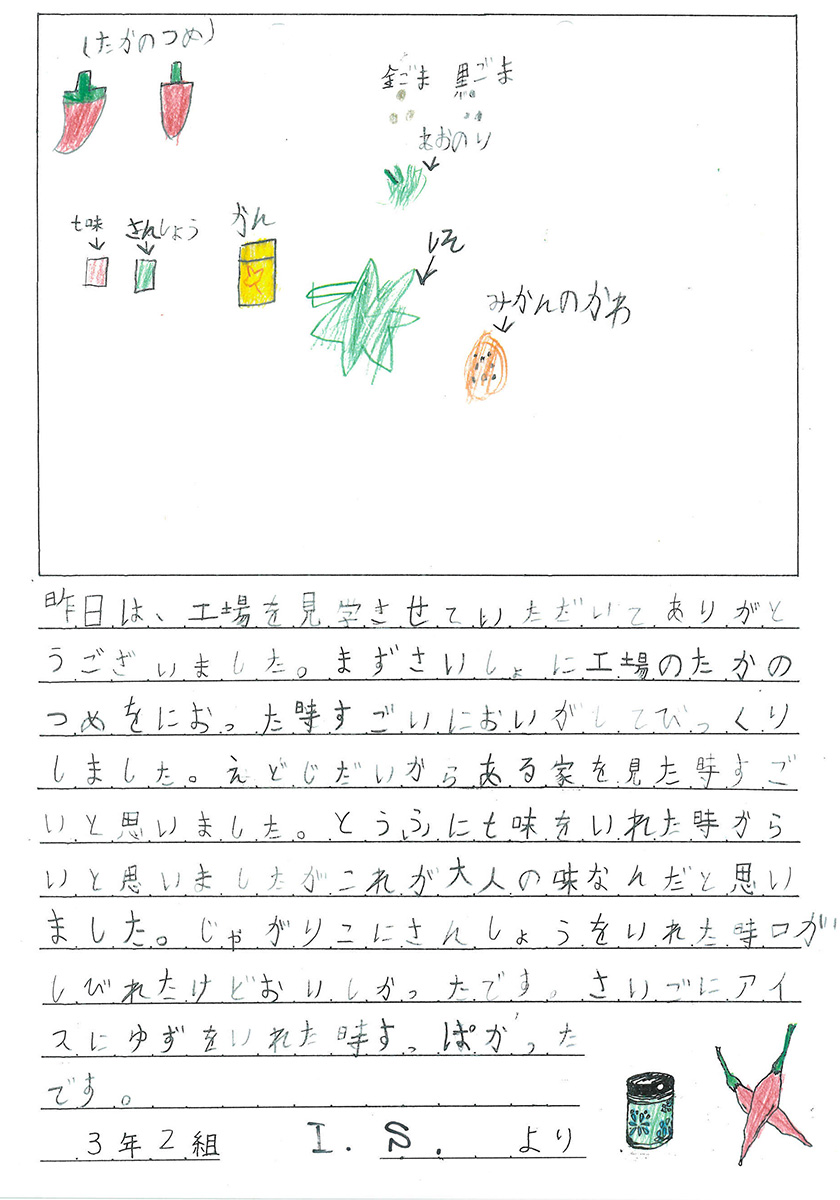 (たかのつめ)
金ごま 黒ごま
あおのり
七味 さんしょう かん
しそ
みかんのかわ
昨日は、工場を見学させていただいてありがと
うございました。まずさいしょに工場のたかの
つめをにおった時すごいにおいがしてびっくり
しました。えどじだいからある家を見た時すご
いと思いました。とうふに七味をいれた時から
いと思いましたがこれが大人の味なんだと思い
ました。じゃがりこにさんしょうをいれた時口が
しびれたけどおいしかったです。さいごにアイ
スにゆずをいれた時すっぱかった
です。
3年2組 I.S. より